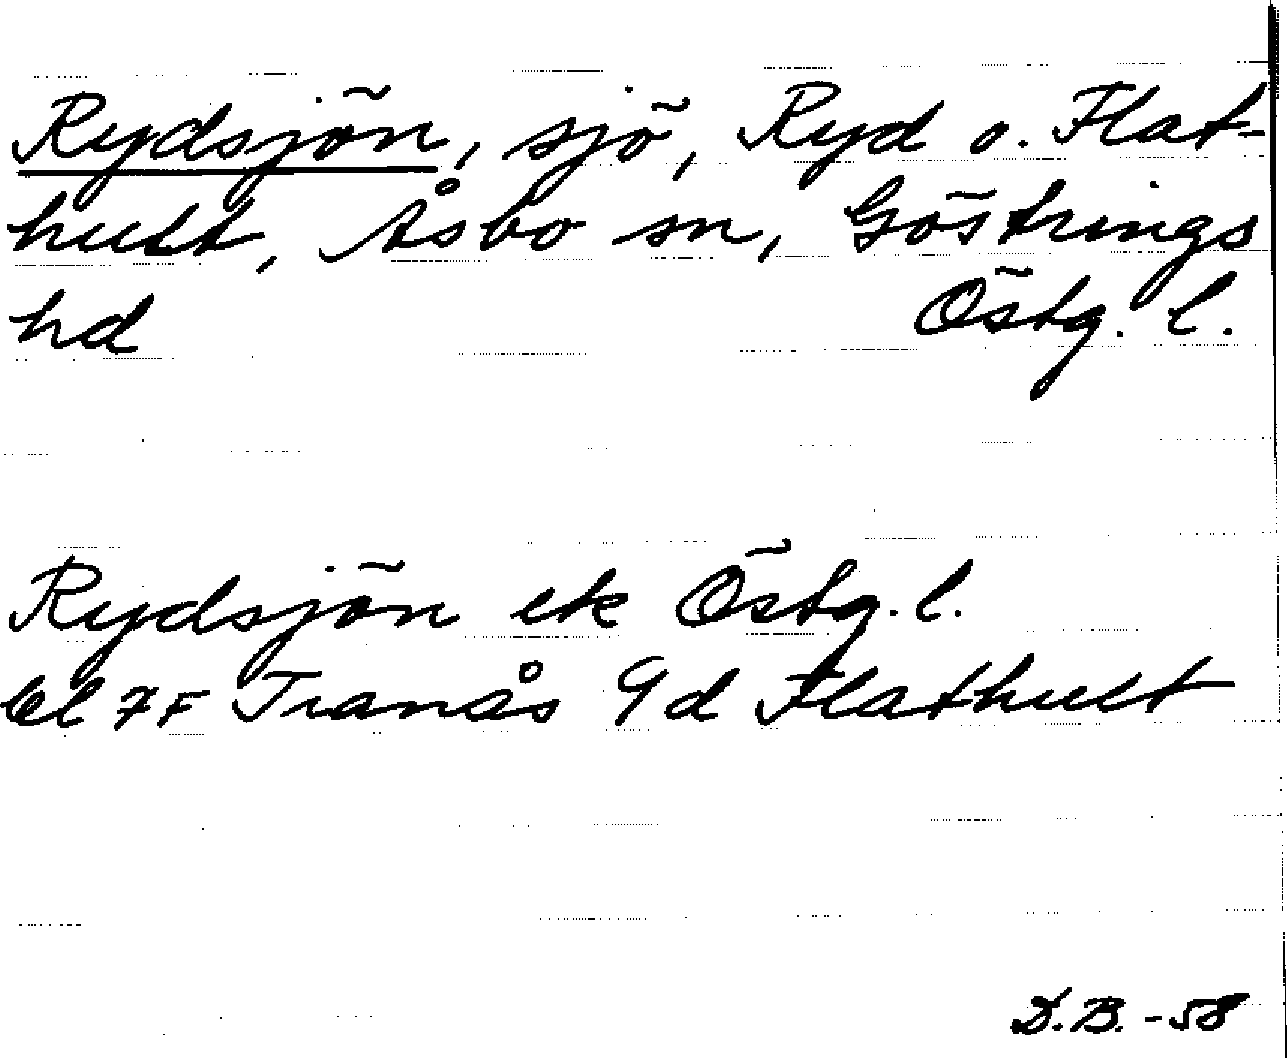 Rydsjön, sjö, Ryd o. Flat-
hult, Åsbo sn, Göstrings
hd Östg. l.
Rydsjön ek Östg. l.
bl 7F Tranås 9d Flathult
D.B. -58